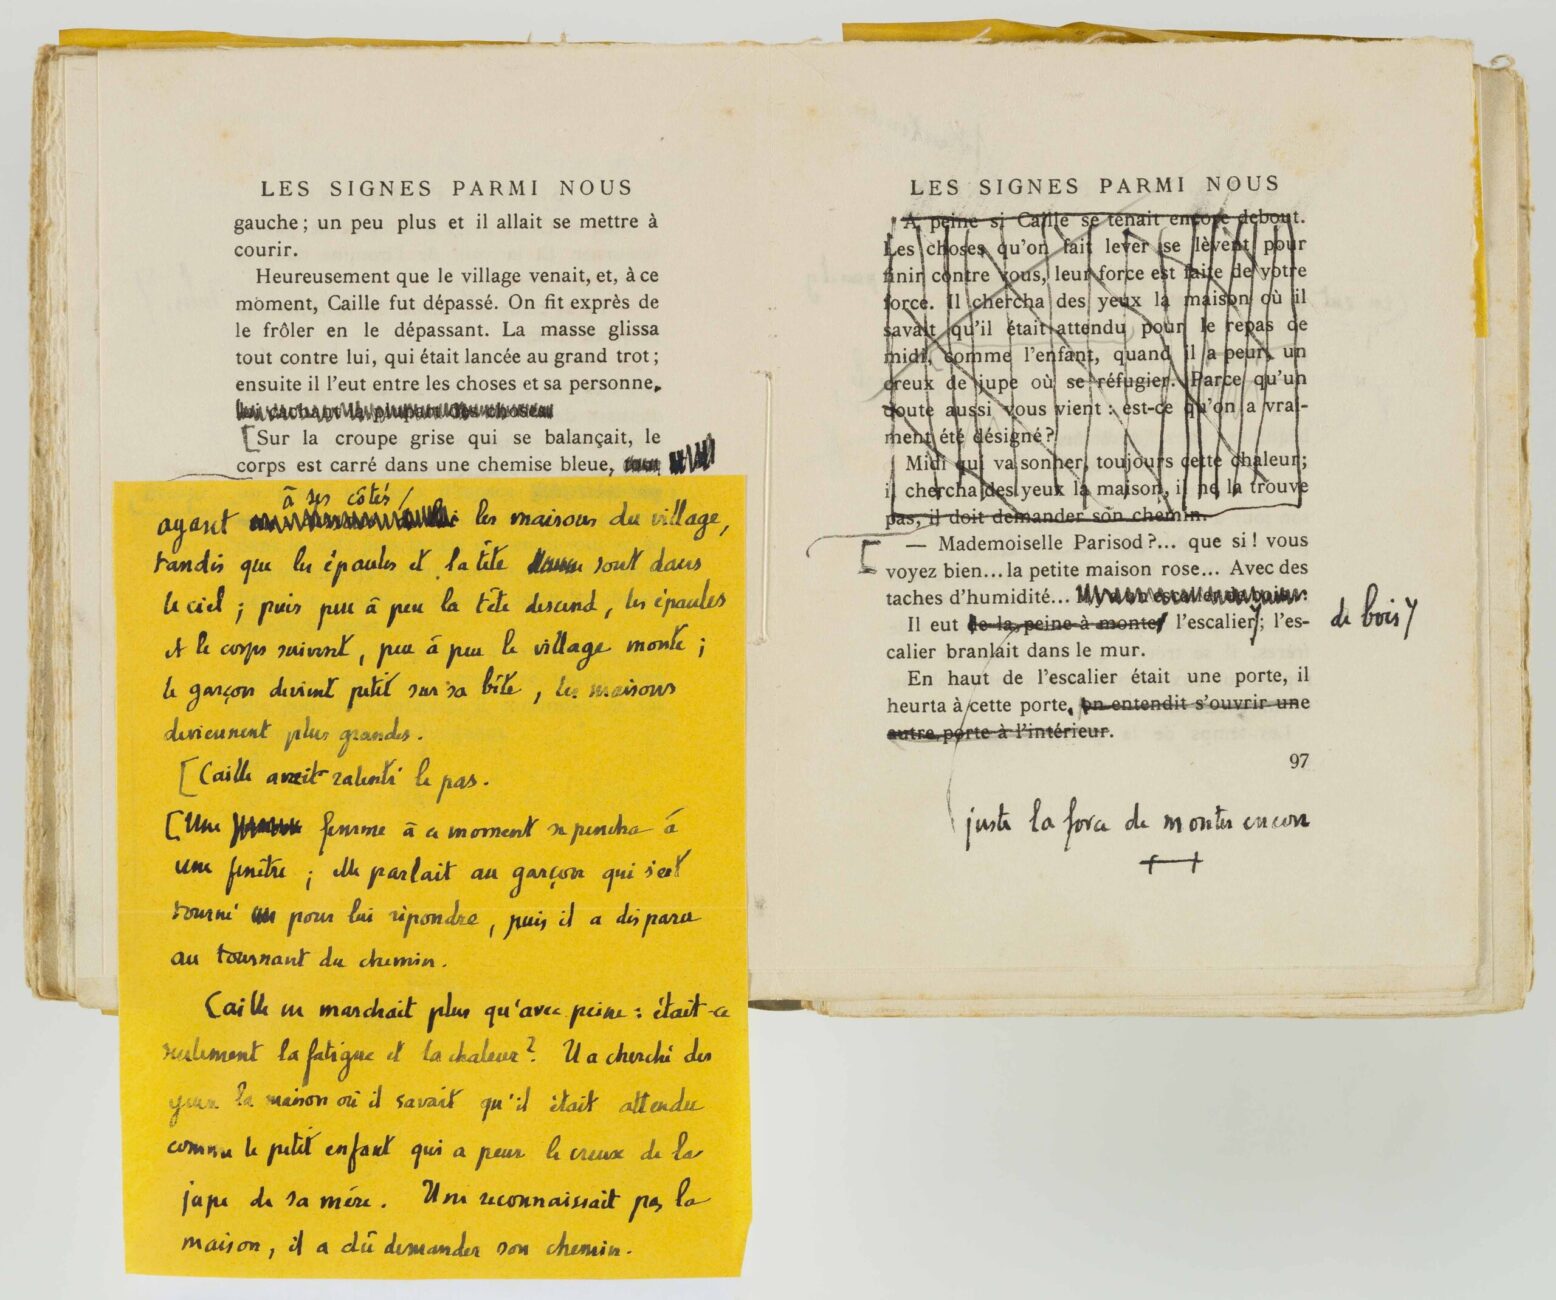 LES SIGNES PARMI NOUS
gauche ; un peu plus et il allait se mettre à
courir.
Heureusement que le village venait, et, à ce
moment, Caille fut dépassé. On fit exprès de
le frôler en le dépassant. La masse glissa
tout contre lui, qui était lancée au grand trot ;
ensuite il l'eut entre les choses et sa personne.
lui cachant la plupart des choses.
[Sur la croupe grise qui se balançait, le
corps est carré dans une chemise bleue,
à ses côtés /
ayant les maisons du village,
tandis que les épaules et la tête sont dans
le ciel ; puis peu à peu la tête descend, les épaules
et le corps suivent, peu à peu le village monte ;
le garçon devient petit sur sa bête, les maisons
deviennent plus grandes.
[Caille avait ralenti le pas.
[Une femme à ce moment se pencha à
une fenêtre ; elle parlait au garçon qui s'est
tourné pour lui répondre, puis il a disparu
au tournant du chemin.
Caille ne marchait plus qu'avec peine : était-ce
seulement la fatigue et la chaleur ? Il a cherché des
yeux la maison où il savait qu'il était attendu
comme le petit enfant qui a peur le creux de la
jupe de sa mère. Il ne reconnaissait pas la
maison, il a dû demander son chemin.
LES SIGNES PARMI NOUS
A peine si Caille se tenait encore debout.
Les choses qu'on fait lever se lèvent pour
finir contre vous, leur force est faite de votre
force. Il chercha des yeux la maison où il
savait qu'il était attendu pour le repas de
midi, comme l'enfant, quand il a peur, un
creux de jupe où se réfugier. Parce qu'un
doute aussi vous vient : est-ce qu'on a vrai-
ment été désigné ?
Midi qui va sonner, toujours cette chaleur ;
il chercha des yeux la maison, il ne la trouve
pas, il doit demander son chemin.
[— Mademoiselle Parisod ?... que si ! vous
voyez bien... la petite maison rose... Avec des
taches d'humidité... Il y a un escalier de bois.
Il eut de la peine à monter l'escalier ; l'es-
de bois
calier branlait dans le mur.
En haut de l'escalier était une porte, il
heurta à cette porte, on entendit s'ouvrir une
autre porte à l'intérieur.
97
juste la force de monter encore